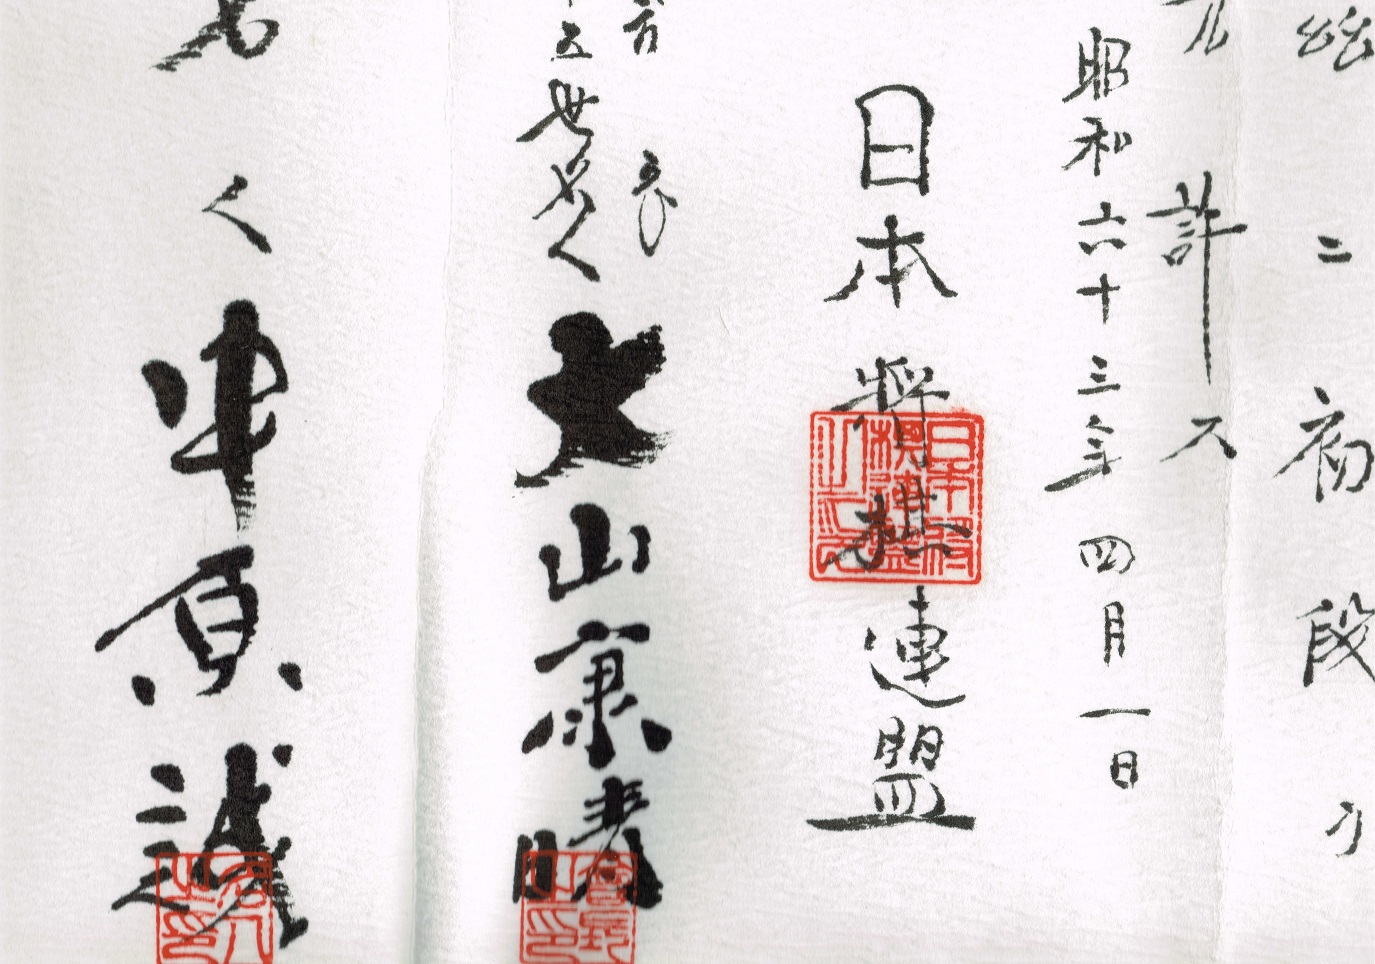 茲ニ初段ヲ
允許ス
昭和六十三年四月一日
日本将棋連盟
会長
十五世名人 大山康晴
名人 中原誠